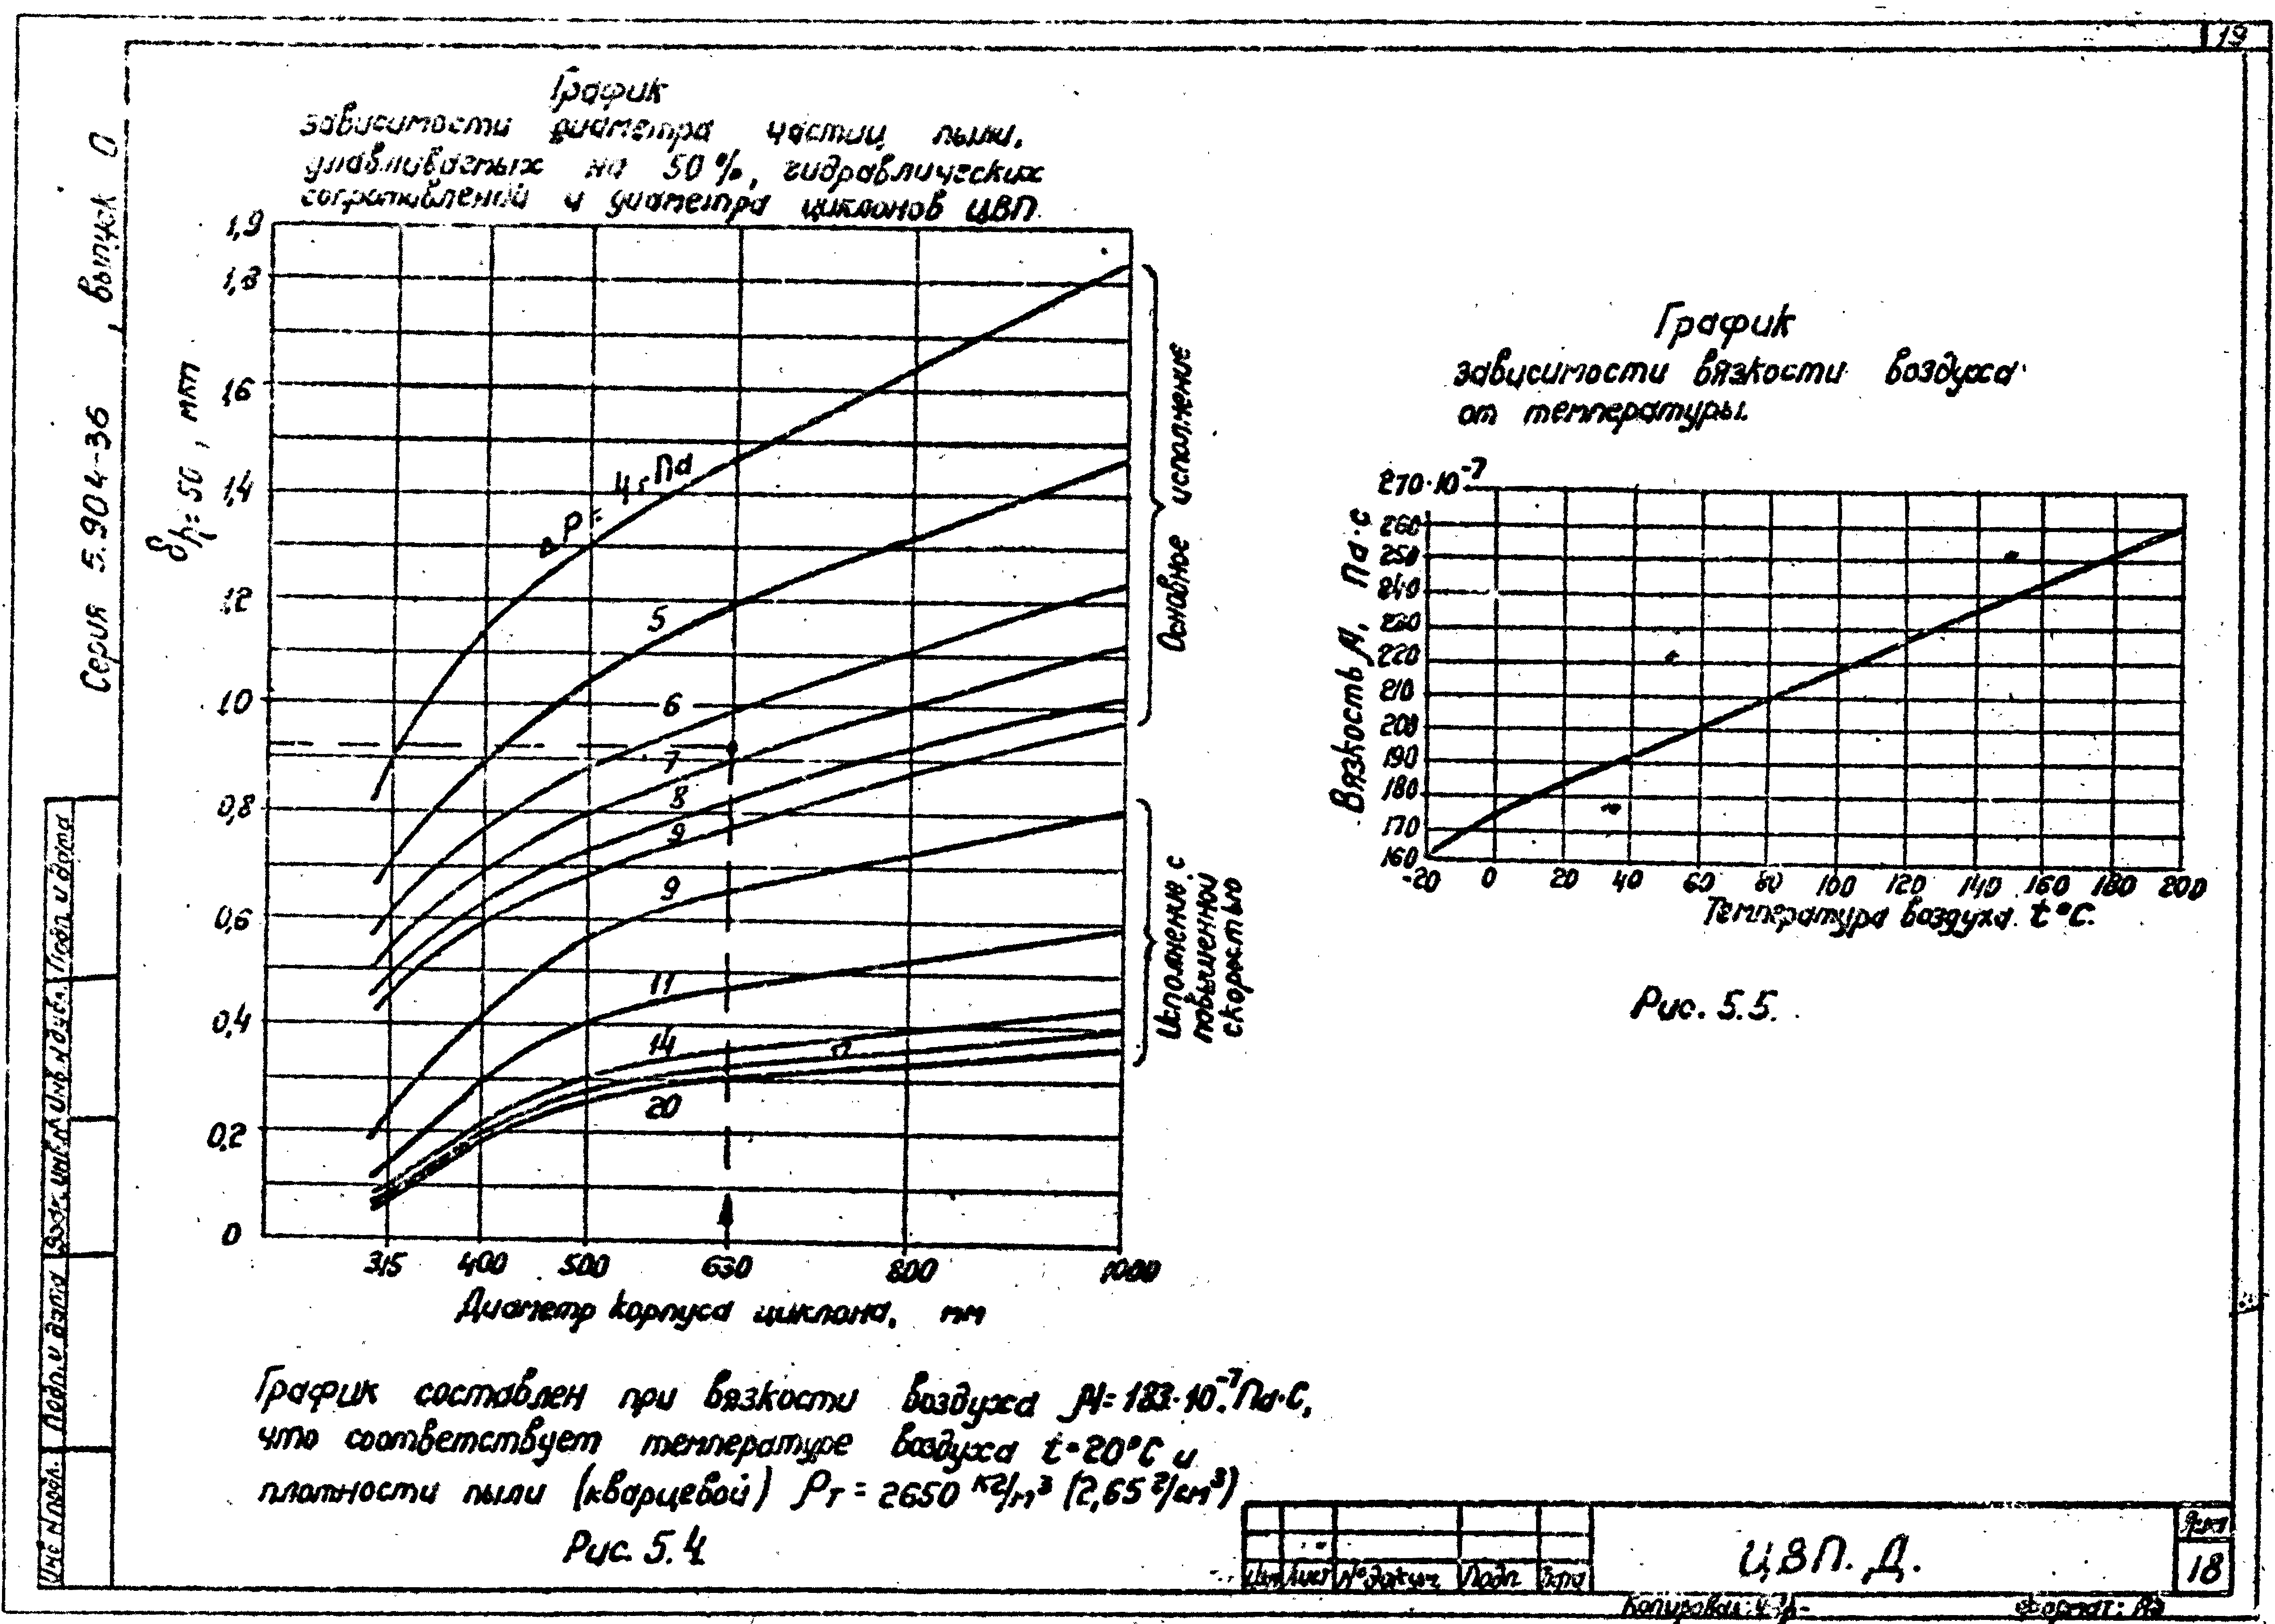 19
График
зависимости диаметра частиц пыли,
улавливаемых на 50%, гидравлических
сопротивлений и диаметра циклонов ЦВП
Серия 5.904-36 , выпуск 0
δh=50, мкм
1,9
1,8
1,6
1,4
1,2
1,0
0,8
0,6
0,4
0,2
0
ΔP= 4 гПа
5
6
7
8
9
9
11
14
17
20
Основное исполнение
Исполнение с
повышенной
скоростью
315 400 500 630 800 1000
Диаметр корпуса циклона, мм
График составлен при вязкости воздуха μ=183·10⁻⁷Па·С,
что соответствует температуре воздуха t=20°C и
плотности пыли (кварцевой) ρт = 2650 кг/м³ (2,65 г/см³)
Рис. 5.4
График
зависимости вязкости воздуха
от температуры.
Вязкость μ, Па·с
270·10⁻⁷
260
250
240
230
220
210
200
190
180
170
160
-20 0 20 40 60 80 100 120 140 160 180 200
Температура воздуха t°C.
Рис. 5.5.
Инв № подл. Подп. и дата Взам. инв. № Инв. № дубл. Подп. и дата
Изм Лист № докум Подп Дата
ЦВП. Д.
Лист
18
Копировал:
Формат: А3